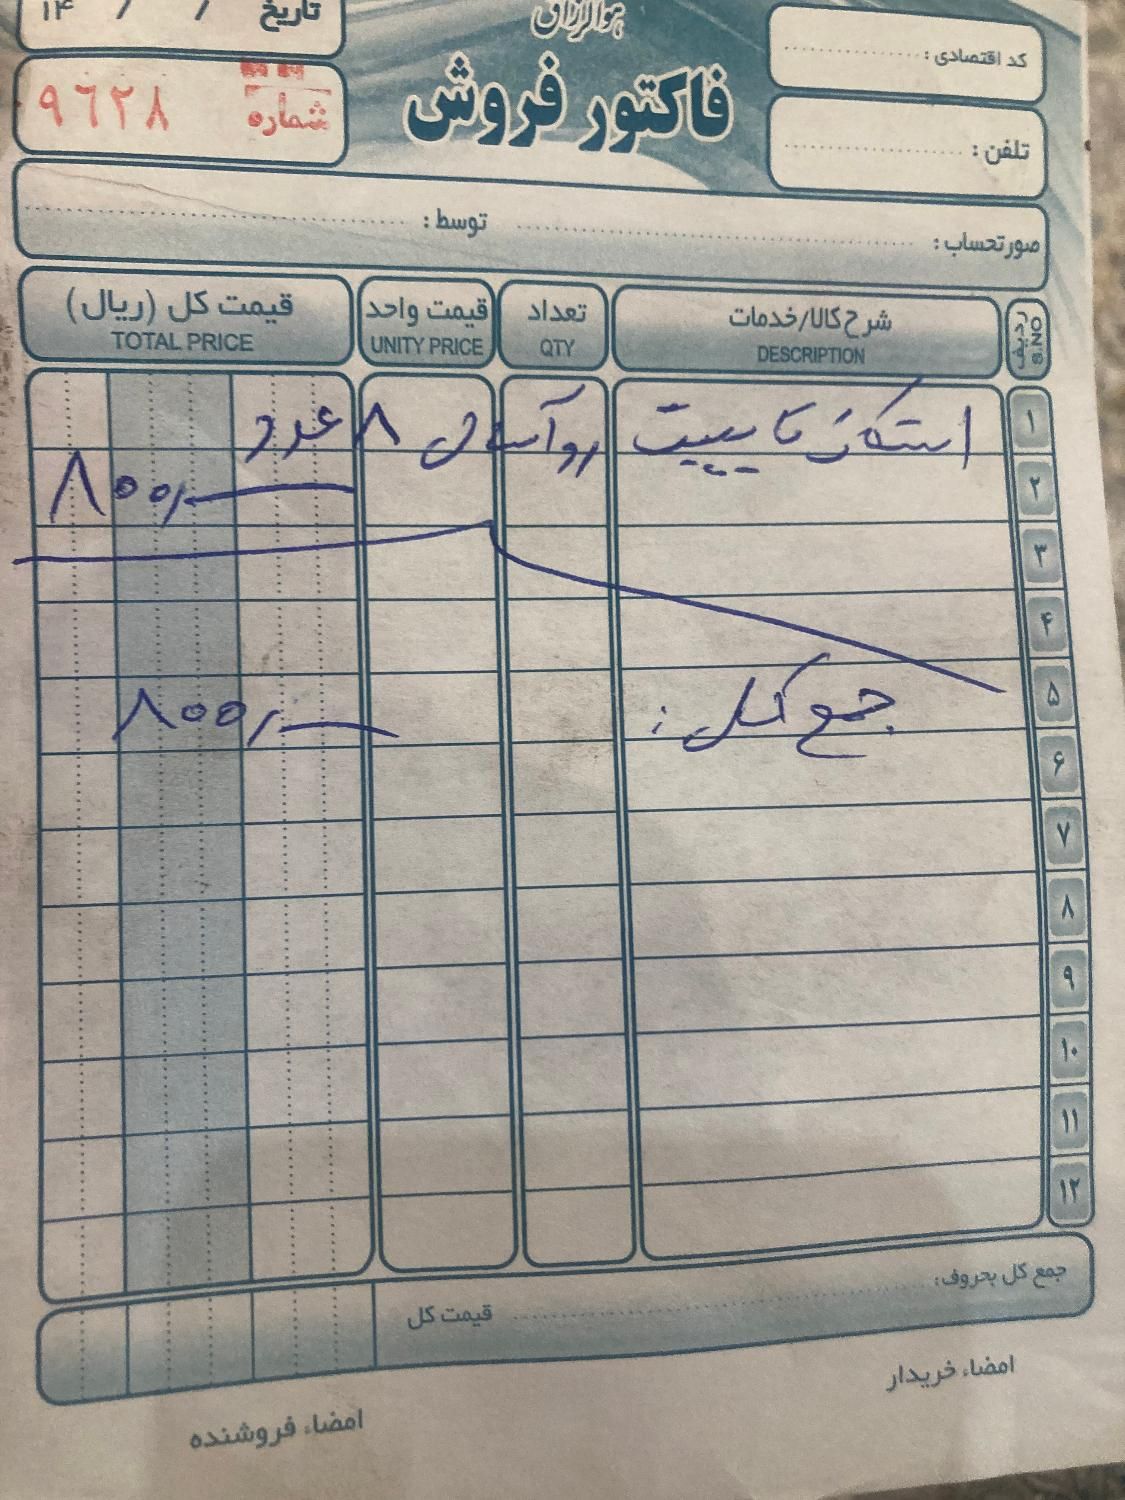 هوالرزاق
فاکتور فروش
تاریخ / / ۱۴
شماره ۹۶۲۸
کد اقتصادی :
تلفن :
صورتحساب : توسط :
ردیف S.NO شرح کالا/خدمات DESCRIPTION تعداد QTY قیمت واحد UNITY PRICE قیمت کل (ریال) TOTAL PRICE
۱ استکان ۸ عدد
۲ ۸۰۰/
۳
۴
۵ جمع کل : ۸۰۰/
۶
۷
۸
۹
۱۰
۱۱
۱۲
جمع کل بحروف: قیمت کل
امضاء خریدار
امضاء فروشنده